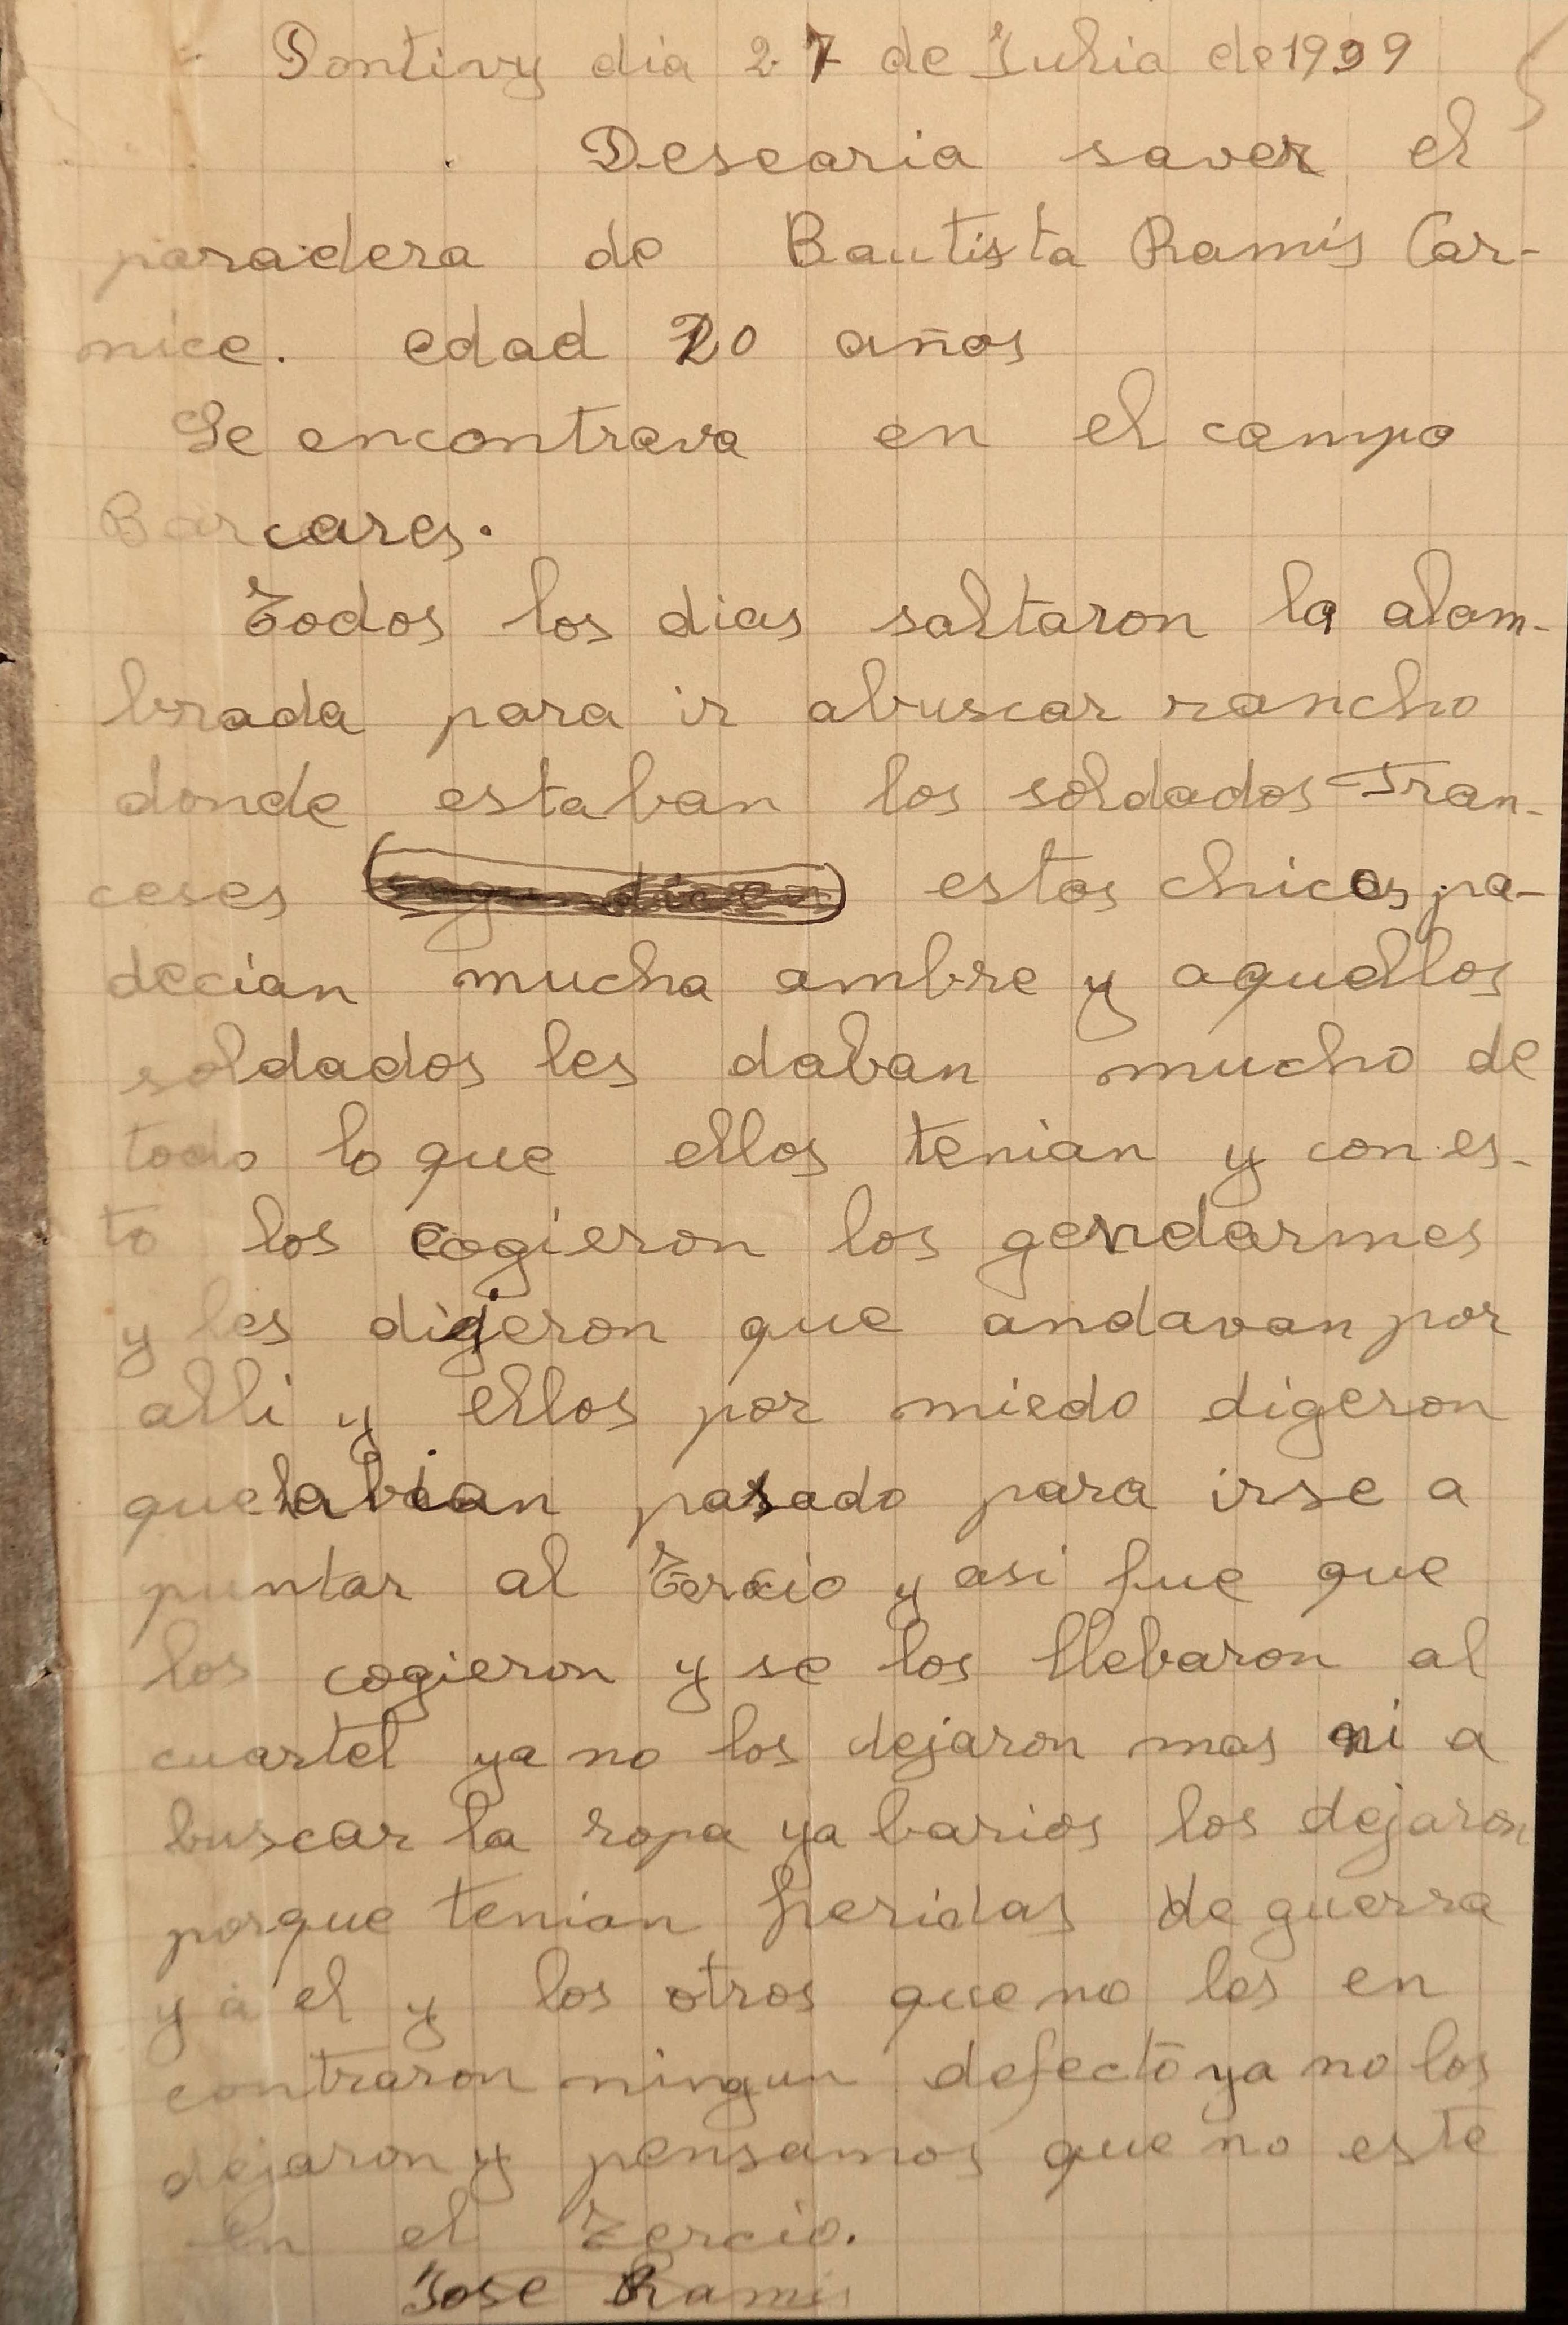 Pontivy dia 27 de Julio de 1939
Desearia saver el
paradero de Bautista Ramis Car-
nice. edad 20 años
Se encontrava en el campo
Barcares.
Todos los dias saltaron la alam-
brada para ir abuscar rancho
donde estaban los soldados Fran-
ceses estos chicos pa-
decian mucha ambre y aquellos
soldados les daban mucho de
todo lo que ellos tenian y con es-
to los cogieron los gendarmes
y les digeron que andavan por
alli y ellos por miedo digeron
que abian pasado para irse a
puntar al Tercio y asi fue que
los cogieron y se los llebaron al
cuartel ya no los dejaron mas ni a
buscar la ropa ya barios los dejaron
porque tenian heridas de guerra
y a el y los otros que no les en
contraron ningun defecto ya no los
dejaron y pensamos que no este
en el Tercio.
Jose Ramis